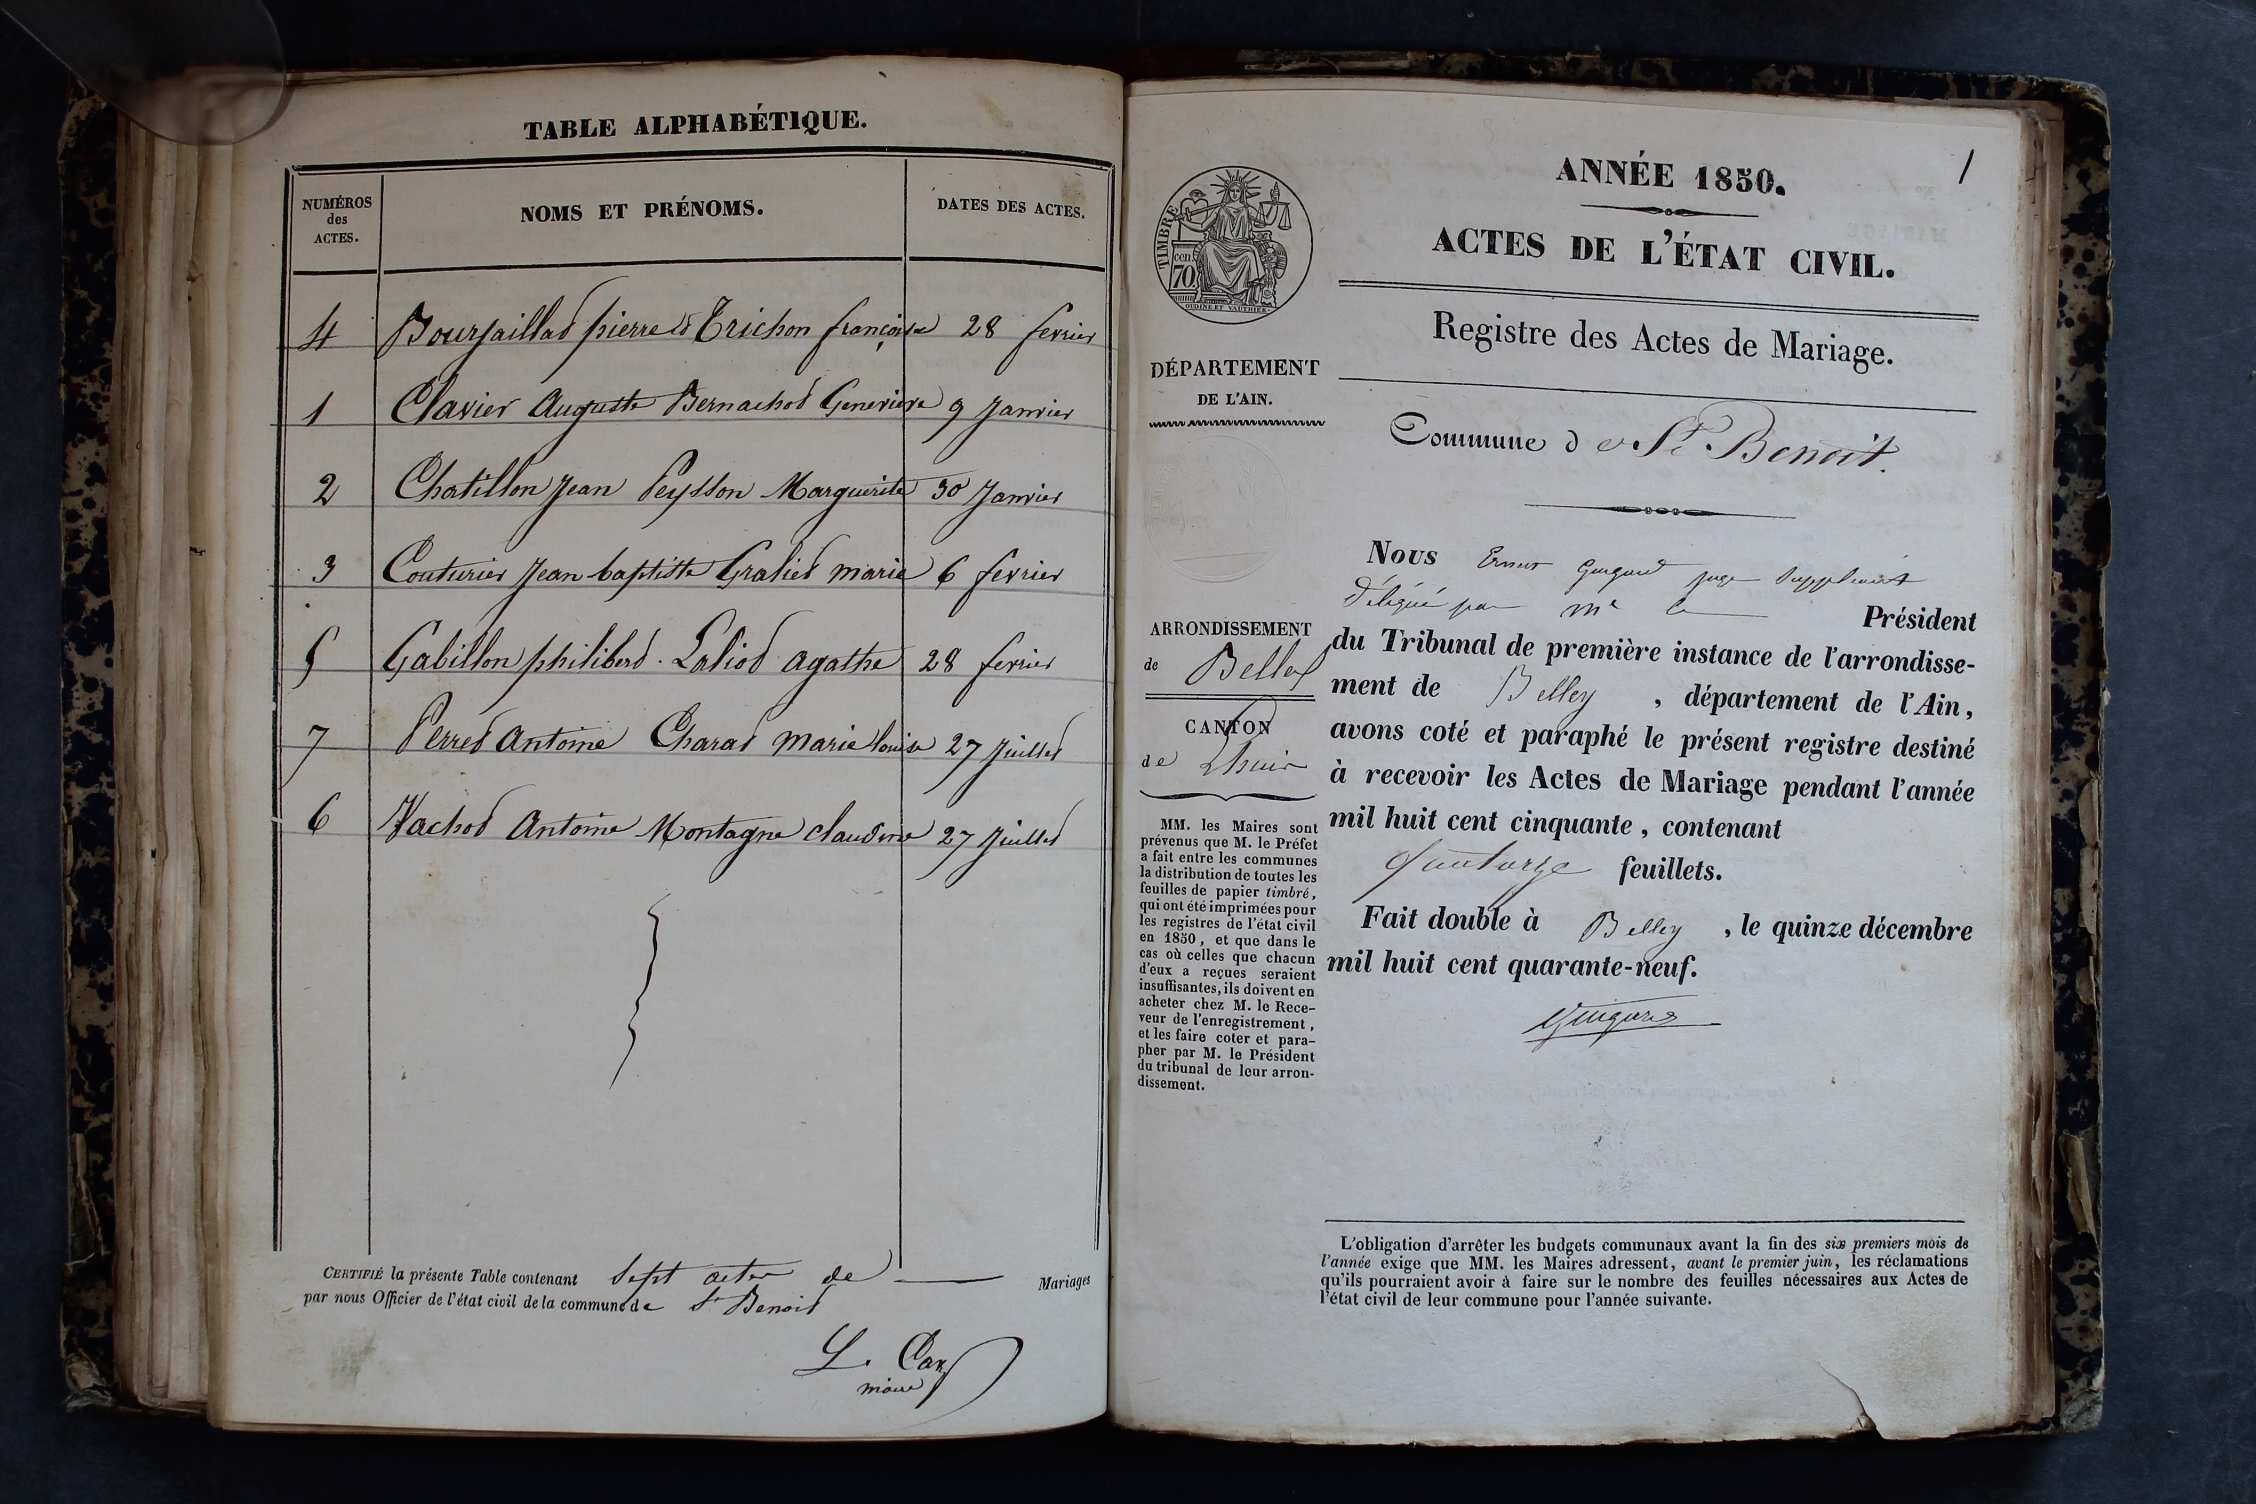 TABLE ALPHABÉTIQUE.
NUMÉROS des ACTES.
NOMS ET PRÉNOMS.
DATES DES ACTES.
4 Bourjaillad pierre & Trichon françoise 28 fevrier
1 Clavier Auguste Bernachod Genevieve 9 Janvier
2 Chatillon Jean Peysson Marguerite 30 Janvier
3 Couturier Jean baptiste Graliet marie 6 fevrier
5 Gabillon philiberd . Laliod agathe 28 fevrier
7 Perred Antoine Charad marie louise 27 Juilled
6 Vachod Antoine Montagne claudine 27 Juilled
CERTIFIÉ la présente Table contenant sept actes de Mariages
par nous Officier de l'état civil de la commune de St Benoid
L. Car
maire
1
ANNÉE 1850.
ACTES DE L'ÉTAT CIVIL.
Registre des Actes de Mariage.
Commune de St Benoit.
TIMBRE
cen.
70.
OUDINE ET VAUTHIER.
DÉPARTEMENT
DE L'AIN.
ARRONDISSEMENT
de Belley
CANTON
de Lhuis
MM. les Maires sont
prévenus que M. le Préfet
a fait entre les communes
la distribution de toutes les
feuilles de papier timbré,
qui ont été imprimées pour
les registres de l'état civil
en 1850, et que dans le
cas où celles que chacun
d'eux a reçues seraient
insuffisantes, ils doivent en
acheter chez M. le Rece-
veur de l'enregistrement,
et les faire coter et para-
pher par M. le Président
du tribunal de leur arron-
dissement.
Nous juge suppléant
délégué par Mr le Président
du Tribunal de première instance de l'arrondisse-
ment de Belley , département de l'Ain,
avons coté et paraphé le présent registre destiné
à recevoir les Actes de Mariage pendant l'année
mil huit cent cinquante, contenant
quatorze feuillets.
Fait double à Belley , le quinze décembre
mil huit cent quarante-neuf.
L'obligation d'arrêter les budgets communaux avant la fin des six premiers mois de
l'année exige que MM. les Maires adressent, avant le premier juin, les réclamations
qu'ils pourraient avoir à faire sur le nombre des feuilles nécessaires aux Actes de
l'état civil de leur commune pour l'année suivante.